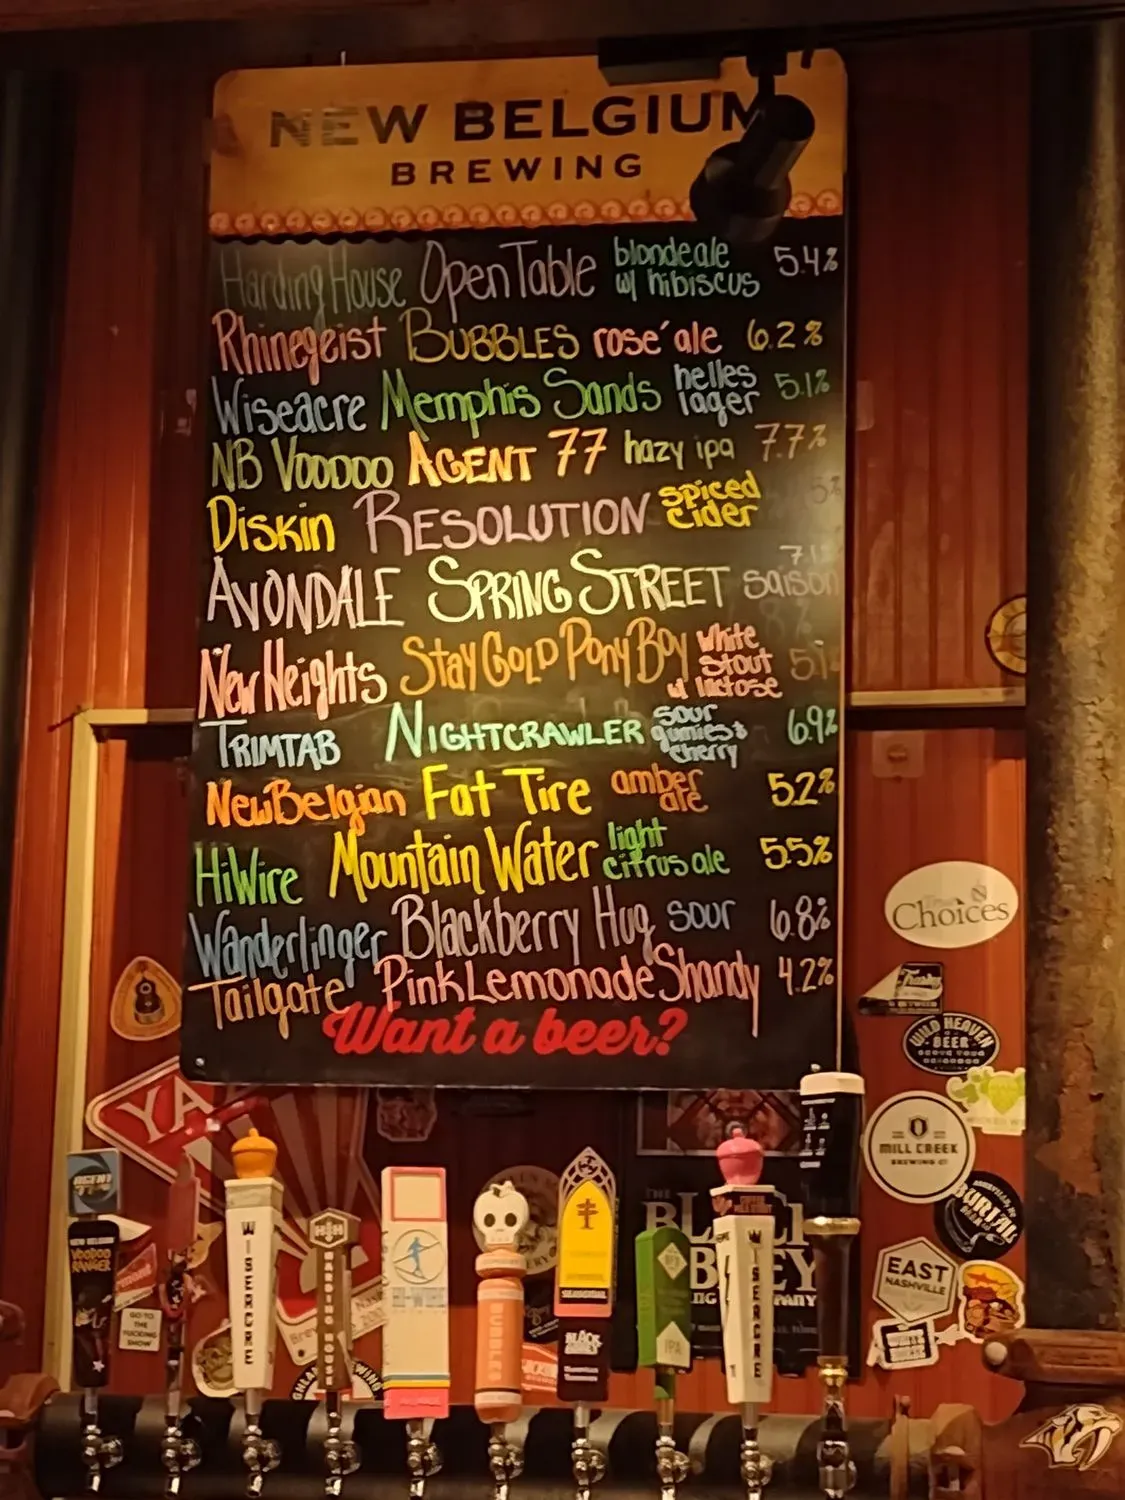 NEW BELGIUM
BREWING
Harding House Open Table blonde ale w/ hibiscus 5.4%
Rhinegeist BUBBLES rosé ale 6.2%
Wiseacre Memphis Sands helles lager 5.1%
NB VOODOO AGENT 77 hazy ipa 7.7%
Diskin RESOLUTION spiced cider
AVONDALE SPRING STREET saison
New Heights Stay Gold Pony Boy white stout w/ lactose
TRIMTAB NIGHTCRAWLER sour gumies & cherry 6.9%
New Belgian Fat Tire amber ale 5.2%
HiWire Mountain Water light citrus ale 5.5%
Wanderlinger Blackberry Hug sour 6.8%
Tailgate Pink Lemonade Shandy 4.2%
Want a beer?
Choices
WILD HEAVEN
BEER
YA
MILL CREEK
BREWING CO
BURIAL
EAST
NASHVILLE
AGENT
NEW BELGIUM
VOODOO
RANGER
GO TO
THE
FUCKING
SHOW
WISEACRE
H H
HARDING HOUSE
HI-WIRE
BUBBLES
SEASONAL
BLACK
ABBEY
THE
BL
B EY
IPA
WISEACRE